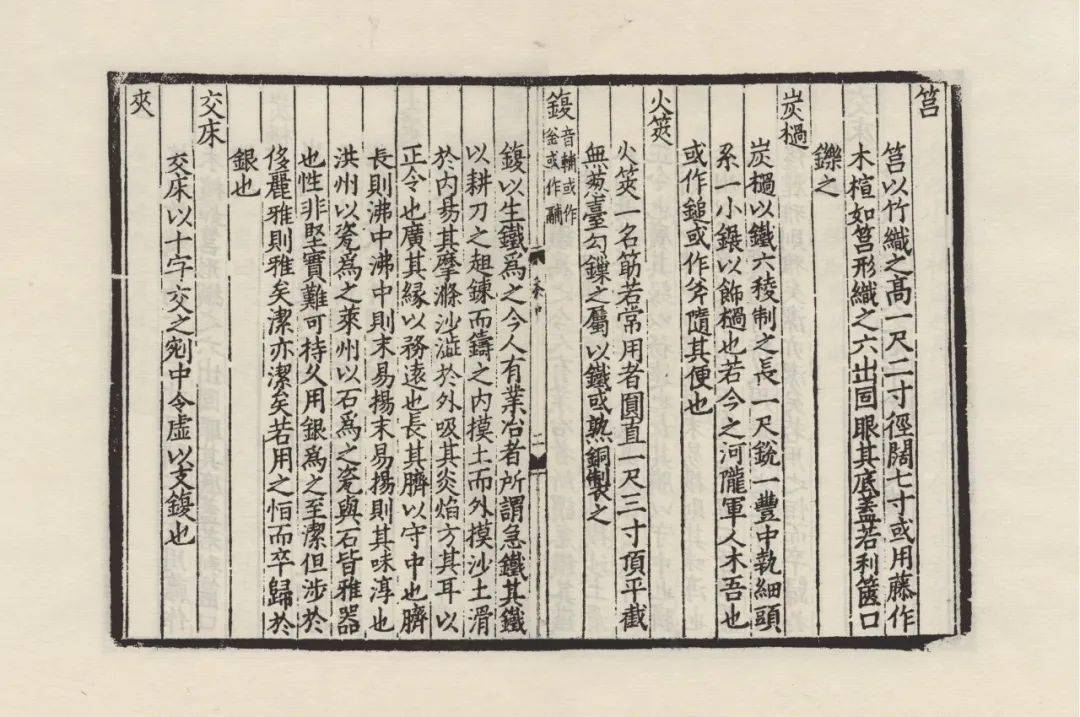 筥
筥以竹織之高一尺二寸徑闊七寸或用藤作
木楦如筥形織之六出固眼其底蓋若利篋口
鑠之
炭檛
炭檛以鐵六稜制之長一尺銳一豐中執細頭
系一小𨰉以飾檛也若今之河隴軍人木吾也
或作鎚或作斧隨其便也
火筴
火筴一名筯若常用者圓直一尺三寸頂平截
無葱臺勾鏁之屬以鐵或熟銅製之
鍑音輔或作
釡或作鬴
茶中
二
鍑以生鐵爲之今人有業冶者所謂急鐵其鐵
以耕刀之趄鍊而鑄之內摸土而外摸沙土滑
於內易其摩滌沙澁於外吸其炎焰方其耳以
正令也廣其緣以務遠也長其臍以守中也臍
長則沸中沸中則末易揚末易揚則其味淳也
洪州以瓷爲之萊州以石爲之瓷與石皆雅器
也性非堅實難可持久用銀爲之至潔但涉於
侈麗雅則雅矣潔亦潔矣若用之恒而卒歸於
銀也
交床
交床以十字交之剜中令虛以支鍑也
夾